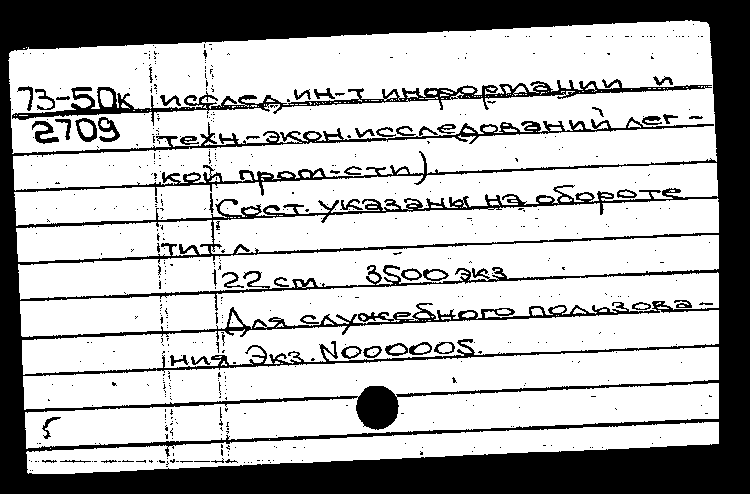 73-50к исслед. ин-т информации и
2709 техн.-экон. исследований лег-
кой пром-сти).
Сост. указаны на обороте
тит. л.
22 см. 3500 экз
Для служебного пользова-
ния. Экз. N000005.
5